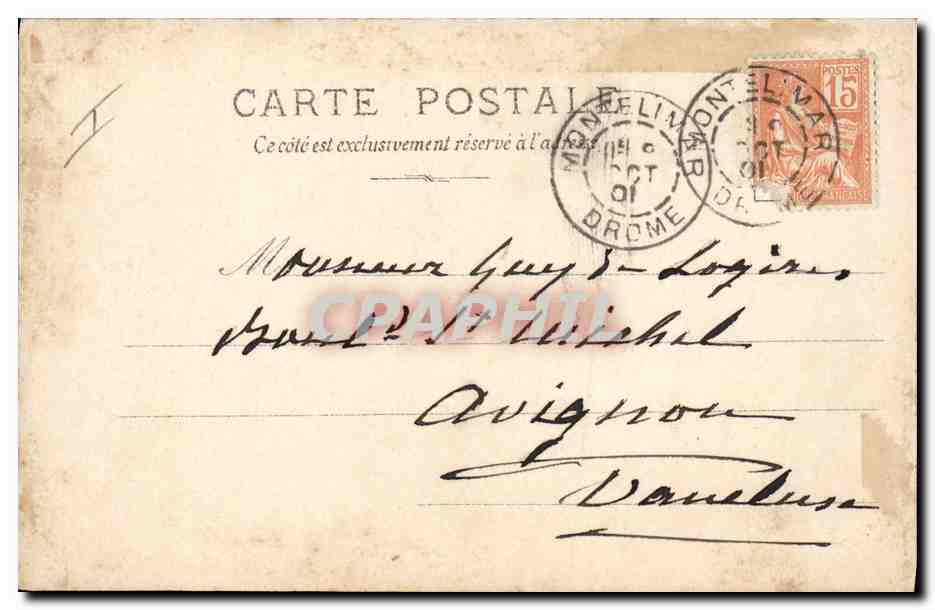 CARTE POSTALE
Ce côté est exclusivement réservé à l'adresse
POSTES
15
MONTELIMAR
OCT
01
DROME
MONTELIMAR
OCT
01
I
Monsieur Guy de
Boul.d St Michel
CPAPHIL
Avignon
Vaucluse